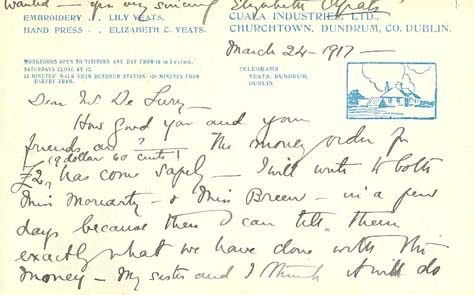 wanted — yrs very sincerely Elizabeth C Yeats
EMBROIDERY . LILY YEATS.
HAND PRESS . ELIZABETH C. YEATS.
CUALA INDUSTRIES, LTD.,
CHURCHTOWN, DUNDRUM, CO. DUBLIN.
March 24 - 1917 —
WORKROOMS OPEN TO VISITORS ANY DAY FROM 10 to 5 o'clock.
SATURDAYS CLOSE AT 12.
MINUTES' WALK FROM DUNDRUM STATION, 20 MINUTES FROM
DARTRY TRAM.
TELEGRAMS
YEATS, DUNDRUM,
DUBLIN.
Dear Mr De Lury —
How good you and your
friends are — The money order for
(9 dollar 60 cents)
£2, has come safely — I will write to both
Miss Moriarty — & Miss Breen — in a few
days because then I can tell them
exactly what we have done with this
money — My sister and I think it will do